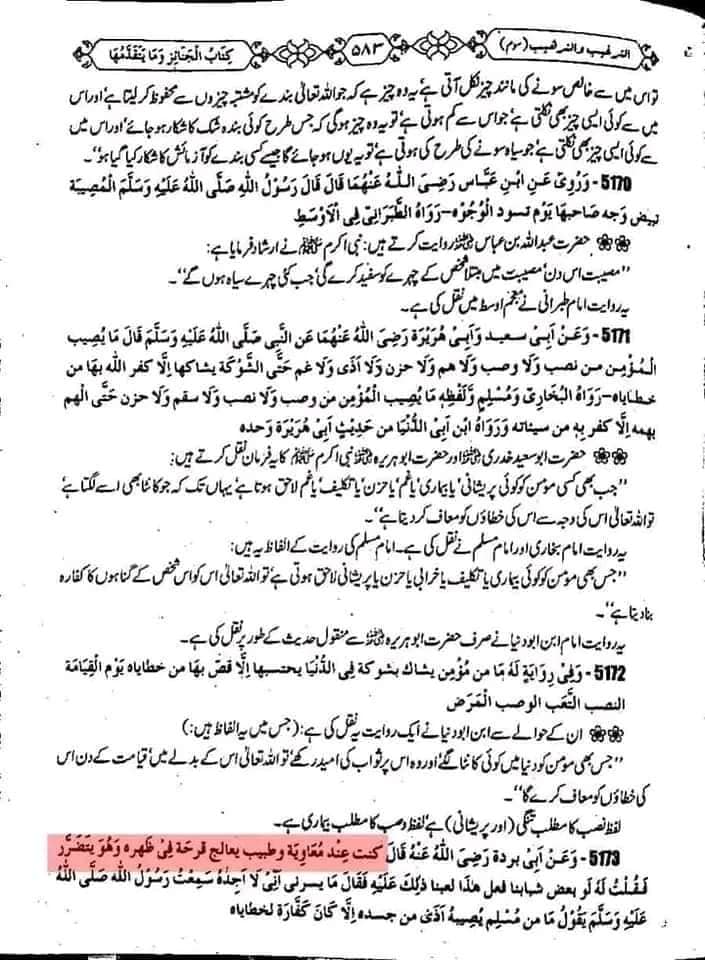 الترغیب والترھیب (سوم)
۵۸۳
كِتَابُ الْجَنَائِزِ وَمَا يَتَقَدَّمُهَا
تو اس میں سے خالص سونے کی مانند چیز نکل آتی ہے‘ یہ وہ چیز ہے کہ جو اللہ تعالیٰ بندے کو مشتبہ چیزوں سے محفوظ کر لیتا ہے‘ اور اس
میں سے کوئی ایسی چیز بھی نکلتی ہے‘ جو اس سے کم ہوتی ہے‘ تو یہ وہ چیز ہوگی کہ جس طرح کوئی بندہ شک کا شکار ہو جائے‘ اور اس میں
سے کوئی ایسی چیز بھی نکلتی ہے‘ جو سیاہ سونے کی طرح کی ہوتی ہے‘ تو یہ یوں ہو جائے گا جیسے کسی بندے کو آزمائش کا شکار کیا گیا ہو‘‘۔
5170 - وَرُوِیَ عَنِ ابْنِ عَبَّاس رَضِیَ اللّٰهُ عَنْهُمَا قَالَ قَالَ رَسُوْلُ اللهِ صَلَّى اللهُ عَلَيْهِ وَسَلَّمَ الْمُصِيْبَة
تبيض وَجه صَاحِبهَا يَوْم تسود الْوُجُوْه - رَوَاهُ الطَّبَرَانِيّ فِي الْاَوْسَط
حضرت عبداللہ بن عباس ﷠ روایت کرتے ہیں: نبی اکرم ﷺ نے ارشاد فرمایا ہے:
’’مصیبت اس دن‘ مصیبت میں مبتلا شخص کے چہرے کو سفید کرے گی‘ جب کئی چہرے سیاہ ہوں گے‘‘۔
یہ روایت امام طبرانی نے معجم اوسط میں نقل کی ہے۔
5171 - وَعَنْ اَبِیْ سعید وَاَبِیْ هُرَيْرَة رَضِیَ اللهُ عَنْهُمَا عَنِ النَّبِي صَلَّى اللهُ عَلَيْهِ وَسَلَّمَ قَالَ مَا يُصِيب
الْمُؤْمِن من نصب وَلَا وصب وَلَا هم وَلَا حزن وَلَا اَذًى وَلَا غم حَتَّى الشَّوْكَة يشاكها اِلَّا كفر الله بهَا من
خطاياه - رَوَاهُ الْبُخَارِيّ وَمُسْلِمٍ وَّلَفْظِهٖ مَا يُصِيب الْمُؤْمِن من وصب وَلَا نصب وَلَا سقم وَلَا حزن حَتَّى الْهم
يهمه اِلَّا كفر بِهٖ من سيئاته وَرَوَاهُ ابْن اَبِی الدُّنْيَا من حَدِيْثِ اَبِیْ هُرَيْرَة وَحده
حضرت ابوسعید خدری ﷜ اور حضرت ابو ہریرہ ﷜ نبی اکرم ﷺ کا یہ فرمان نقل کرتے ہیں:
’’جب بھی کسی مؤمن کو کوئی پریشانی‘ یا بیماری‘ یا غم‘ یا حزن‘ یا تکلیف‘ یا غم لاحق ہوتا ہے‘ یہاں تک کہ جو کانٹا بھی اسے لگتا ہے‘
تو اللہ تعالیٰ اس کی وجہ سے اس کی خطاؤں کو معاف کر دیتا ہے‘‘۔
یہ روایت امام بخاری اور امام مسلم نے نقل کی ہے۔ امام مسلم کی روایت کے الفاظ یہ ہیں:
’’جس بھی مؤمن کو کوئی بیماری یا تکلیف یا خرابی یا حزن یا پریشانی لاحق ہوتی ہے‘ تو اللہ تعالیٰ اس کو اس شخص کے گناہوں کا کفارہ
بنا دیتا ہے‘‘۔
یہ روایت امام ابن ابودنیا نے صرف حضرت ابو ہریرہ ﷜ سے منقول حدیث کے طور پر نقل کی ہے۔
5172 - وَفِیْ رِوَايَةٍ لَهُ مَا من مُؤْمِن يشاك بشوكة فِی الدُّنْيَا يحتسبها اِلَّا قصّ بهَا من خطاياه يَوْم الْقِيَامَة
النصب التَّعَب الوصب الْمَرَض
ان کے حوالے سے ابن ابودنیا نے ایک روایت یہ نقل کی ہے: (جس میں یہ الفاظ ہیں:)
’’جس بھی مؤمن کو دنیا میں کوئی کانٹا لگے‘ اور وہ اس پر ثواب کی امید رکھے‘ تو اللہ تعالیٰ اس کے بدلے میں‘ قیامت کے دن اس
کی خطاؤں کو معاف کرے گا‘‘۔
لفظ نصب کا مطلب تنگی (اور پریشانی) ہے‘ لفظ وصب کا مطلب بیماری ہے۔
5173 - وَعَنْ اَبِیْ بردة رَضِیَ اللهُ عَنْهُ قَالَ كنت عِنْد مُعَاوِيَة وطبيب يعالج قرحَة فِیْ ظَهره وَهُوَ يتَضَرَّر
فَقُلْتُ لَهٗ لَو بعض شبابنا فعل هٰذَا لعبنا ذٰلِكَ عَلَيْهِ فَقَالَ مَا يسرنی اَنِّیْ لَا اَجِدُهٗ سَمِعْتُ رَسُوْلُ الله صَلَّى اللهُ
عَلَيْهِ وَسَلَّمَ يَقُوْلُ مَا من مُسْلِم يُصِيبهُ اَذًى من جسده اِلَّا كَانَ كَفَّارَة لخطاياه